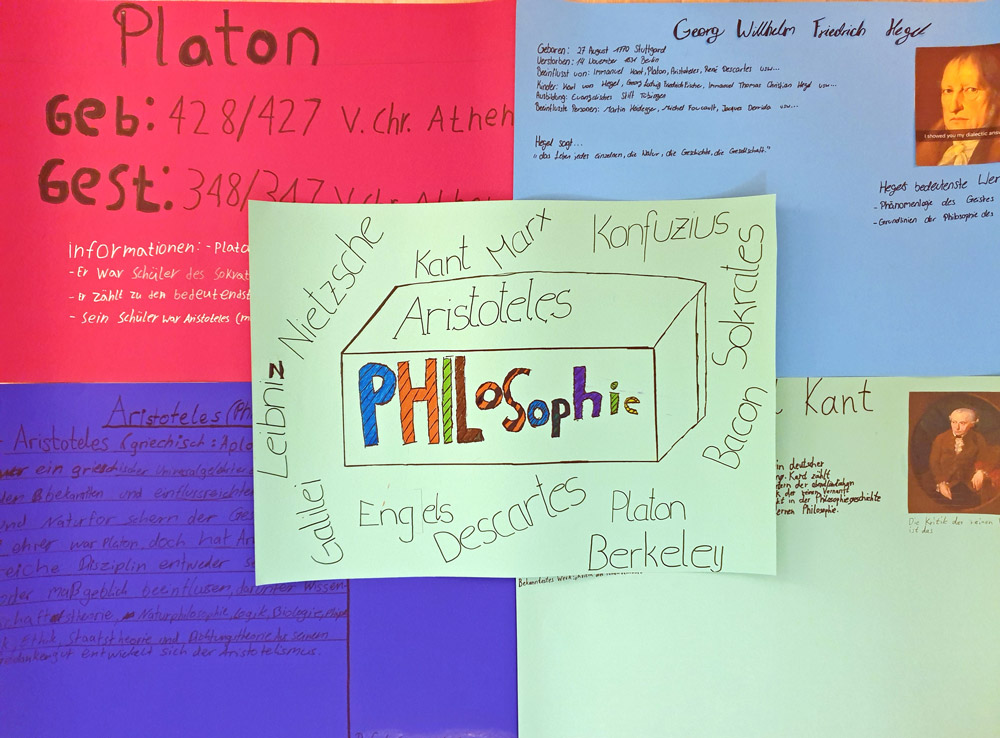 Platon
Geb: 428/427 v. Chr. Athen
Gest: 348/347 v. Chr. Athen
Informationen: - Plato
- Er war Schüler des Sokrat
- er zählt zu den bedeutendst
- sein Schüler war Aristoteles (m
Georg Willhelm Friedrich Hegel
Geboren: 27 August 1770 Stuttgard
Verstorben: 14 November 1831 Berlin
Beeinflusst von: Immanuel Kant, Platon, Aristoteles, René Descartes usw...
Kinder: Karl von Hegel, Georg Ludwig Friedrich Fischer, Immanuel Thomas Christian Hegel usw...
Ausbildung: Evangelisches Stift Tübingen
Beeinflusste Personen: Martin Heidegger, Michel Foucault, Jacques Derrida usw...
Hegel sagt...
"das Leben jedes einzelnen, die Natur, die Geschichte, die Gesellschaft."
I showed you my dialectic answ
Hegels bedeutenste Wer
- Phänomenologie des Geistes
- Grundlinien der Philosophie des
Nietzsche
Kant
Marx
Konfuzius
Sokrates
Aristoteles
PHILosophie
Leibniz
Bacon
Galilei
Engels
Descartes
Platon
Berkeley
Aristoteles (Ph
Aristoteles (griechisch: Aplo
war ein griechischer Universalgelehrter
den bekannten und einflussreichten
und Naturfor schern der Ges
ehrer war Platon, doch hat Ar
reiche Disziplin entweder s
oder maßgeblich beeinflussen, darunter Wissen-
schaftstheorie, Naturphilosophie, Logik, Biologie,
Ethik, Staatstheorie und Dichtungstheorie. Aus seinem
Gedankengut entwickelt sich der Aristotelismus.
Kant
in deutscher
ng. Kant zählt
tern der abendländischen
k der reinen Vernunft
kt in der Philosophiegeschichte
ernen Philosophie.
Die Kritik der reinen
ist das